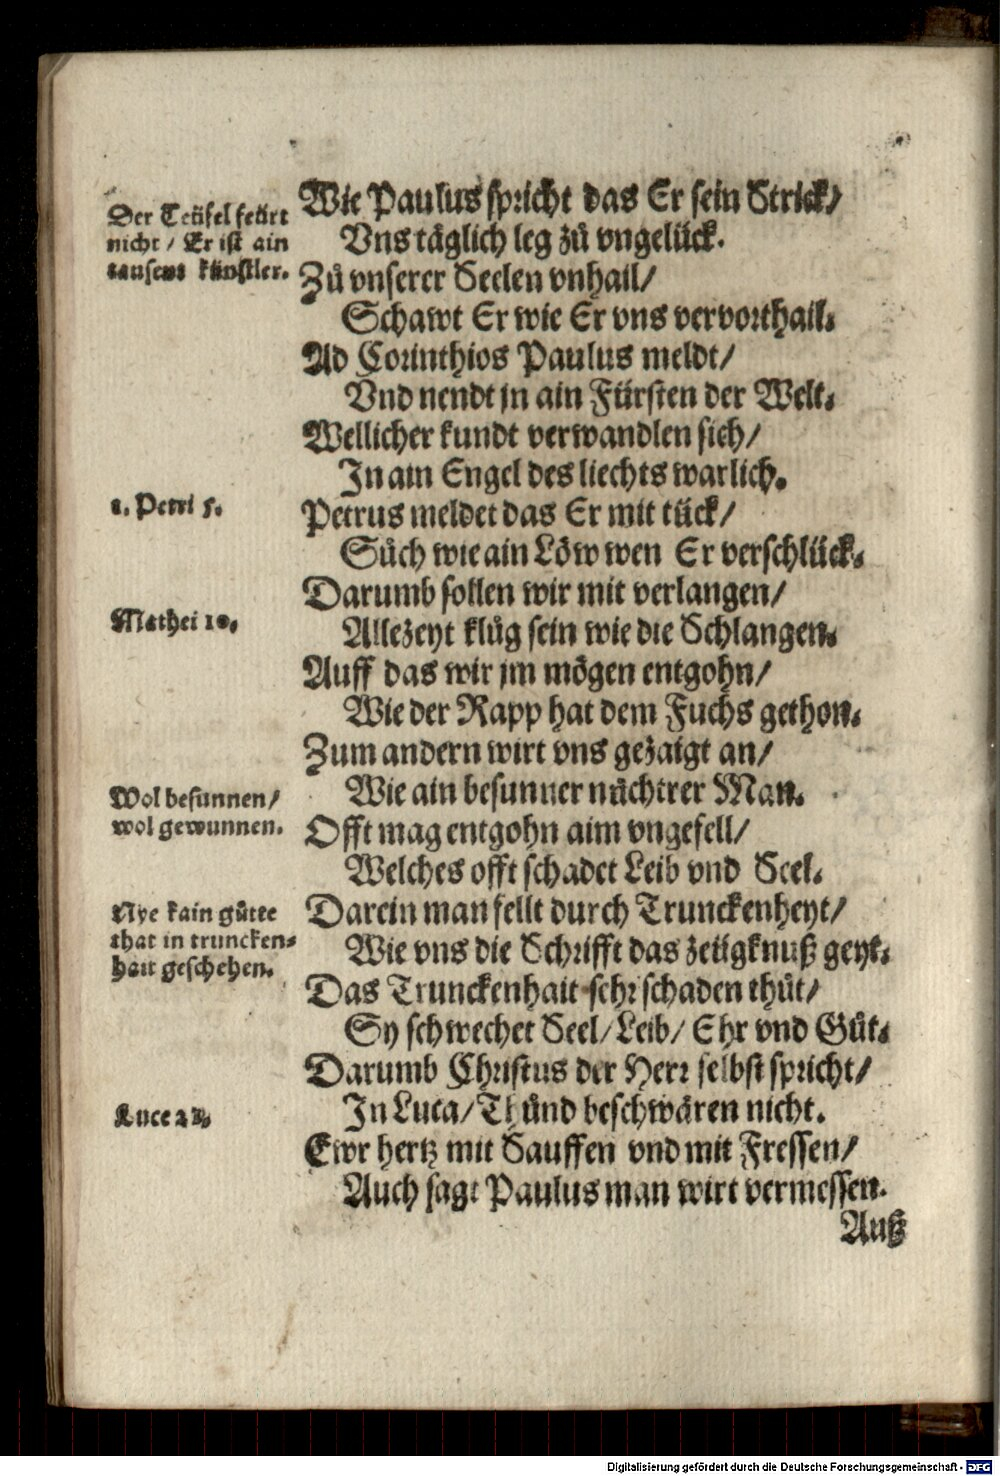 Der Teüfel feürt
nicht / Er ist ain
tausent künstler.
Wie Paulus spricht das Er sein Strick/
Vns täglich leg zů vngelück.
Zů vnserer Seelen vnhail/
Schawt Er wie Er vns vervorthail.
Ad Corinthios Paulus meldt/
Vnd nendt jn ain Fürsten der Welt.
Wellicher kundt verwandlen sich/
In ain Engel des liechts warlich.
1. Petri 5.
Petrus meldet das Er mit tück/
Sůch wie ain Löw wen Er verschlück.
Darumb sollen wir mit verlangen/
Mathei 10.
Allezeyt klůg sein wie die Schlangen.
Auff das wir jm mögen entgohn/
Wie der Rapp hat dem Fuchs gethon.
Zum andern wirt vns gezaigt an/
Wol besunnen/
wol gewunnen.
Wie ain besunner nüchtrer Man.
Offt mag entgohn aim vngefell/
Welches offt schadet Leib vnd Seel.
Nye kain gůtte
that in truncken-
hait geschehen.
Darein man fellt durch Trunckenheyt/
Wie vns die Schrifft das zeügknuß geyt.
Das Trunckenhait sehr schaden thůt/
Sy schwechet Seel/ Leib/ Ehr vnd Gůt.
Darumb Christus der Herr selbst spricht/
Luce 21.
In Luca/ Thünd beschwären nicht.
Ewr hertz mit Sauffen vnd mit Fressen/
Auch sagt Paulus man wirt vermessen.
Auß
Digitalisierung gefördert durch die Deutsche Forschungsgemeinschaft - DFG